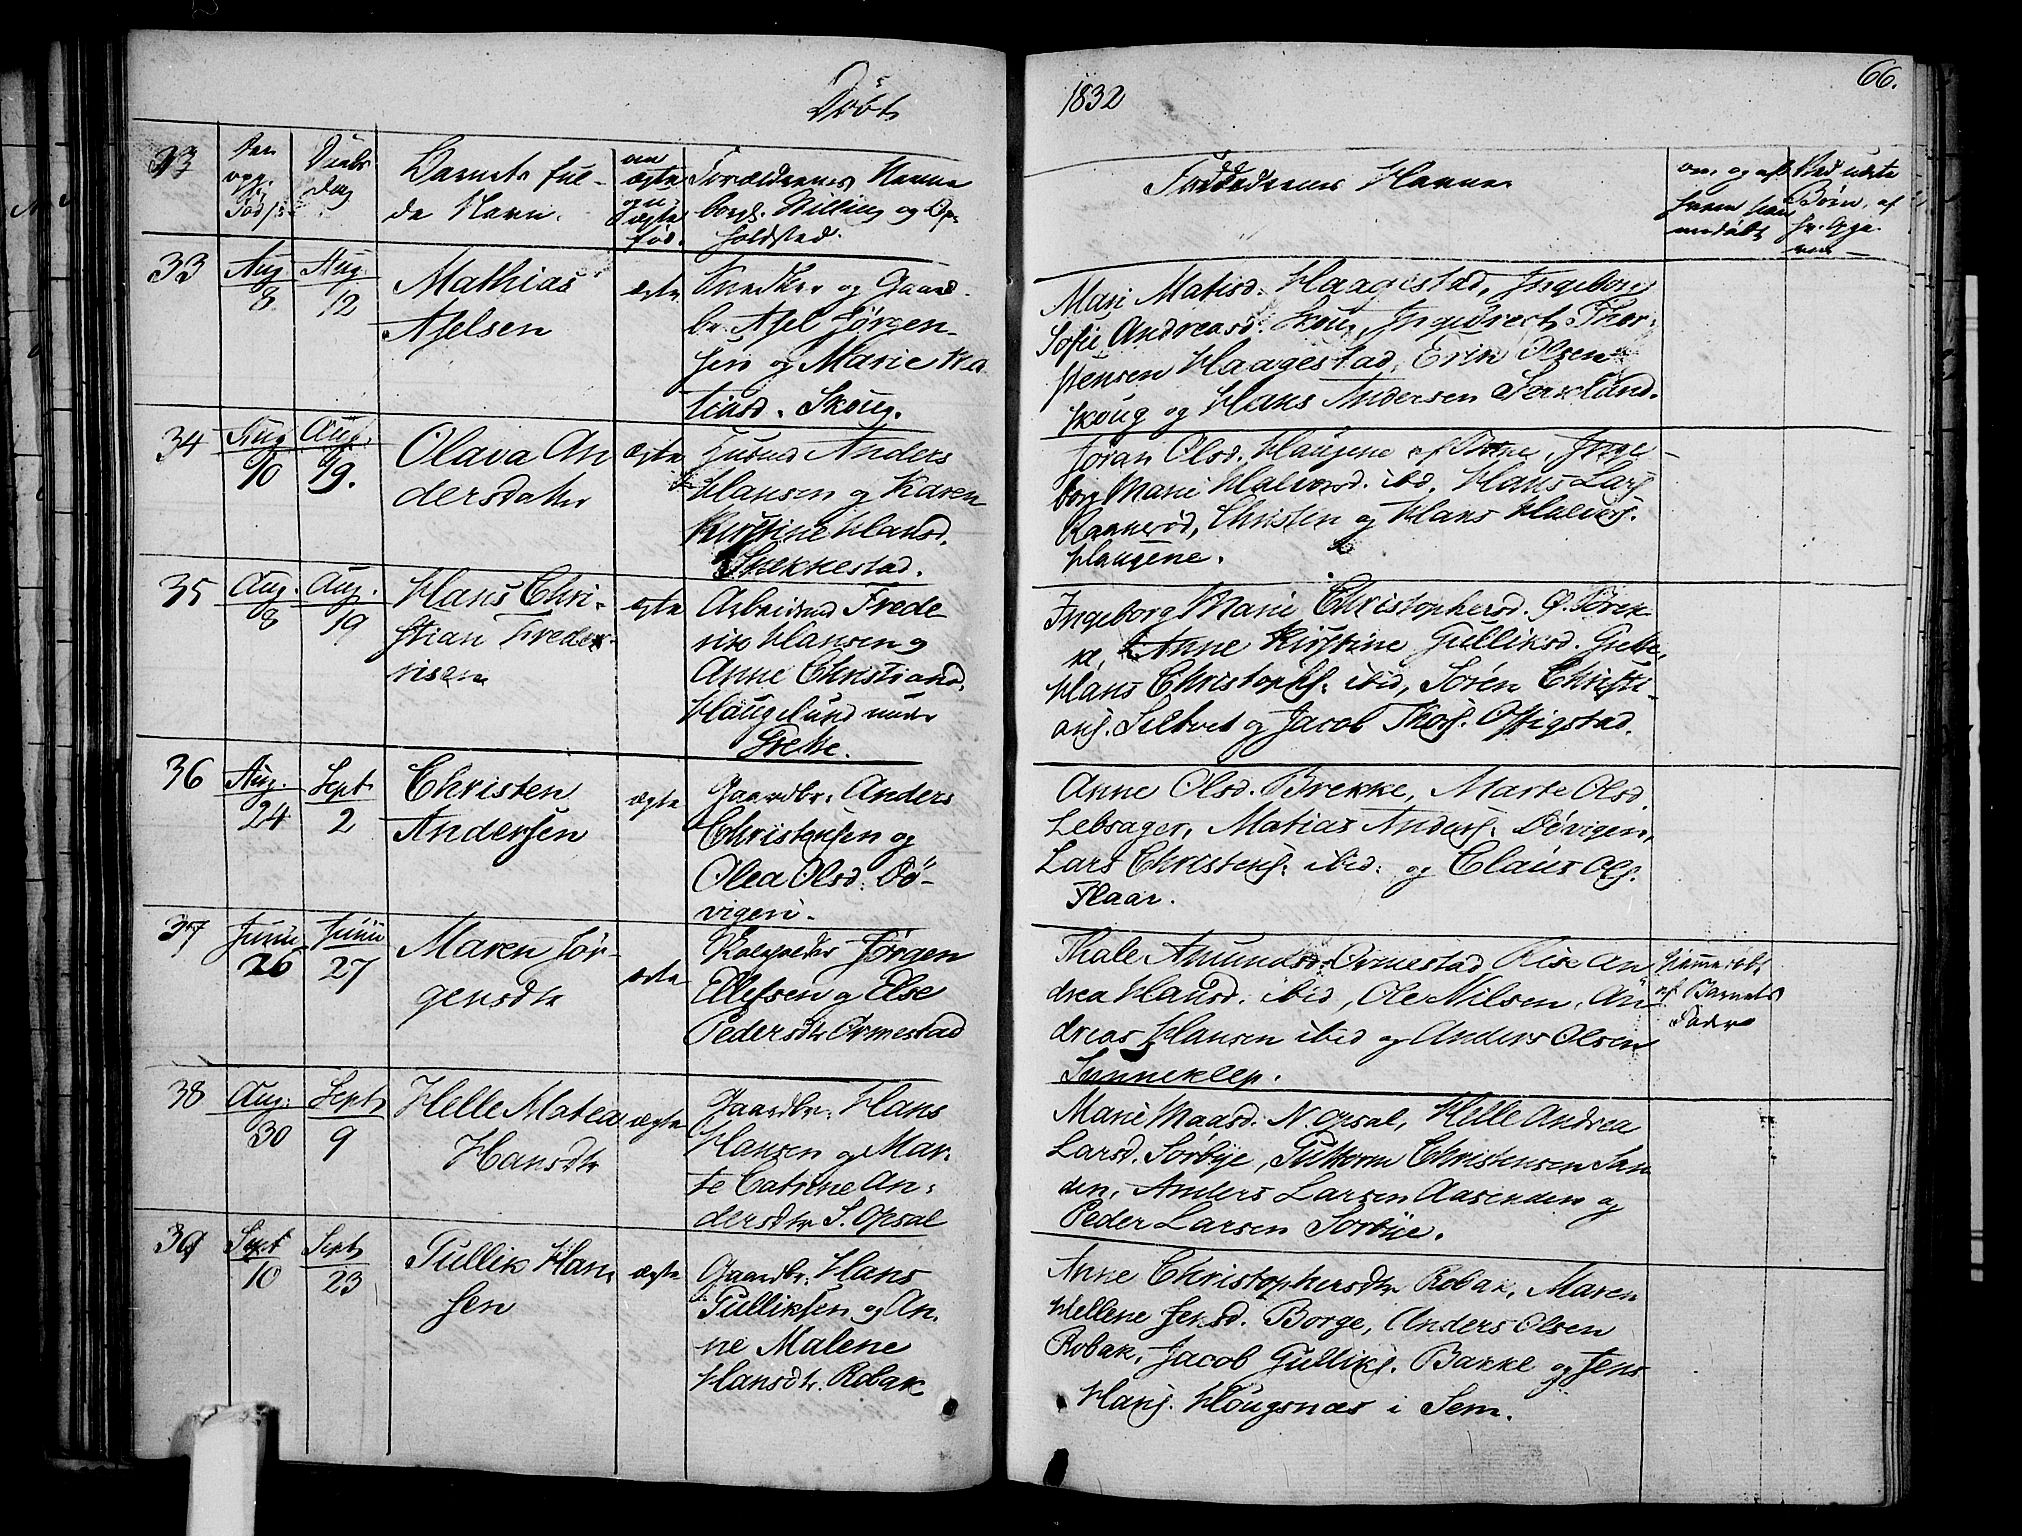 Døbt
1832
66.
Daabs
Dag
Barnets ful-
de Navn.
ægte
født
Forældrenes Navne
og Op-
holdsted.
Faddernes Navne
om og af
hvem hjem
medøbt
Børn, af
33
Aug.
8
Aug.
12
Mathias
Axelsen
ægte
og Gaard-
br. Axel Jørgen-
sen og Marie Ma
tiasd. Skoug.
Mari Matisd. Haagestad, Ingeborg
Sofie Andreasd. Skoug, Ingebret Thor-
stensen Haagestad, Erik Olsen
Skoug og Hans Andersen Forklund.
34
Aug
10
Aug.
19.
Olava An
dersdatter
ægte
Anders
Hansen og Karen
Kirstine Hansd.
Skekkestad.
Jøran Olsd. Haugene, Inge-
borg Marie Halvorsd. ibd. Hans Lars.
Rannerød, Christen og Hans Halvors.
Haugene.
35
Aug.
8
Aug.
19
Hans Chri-
stian Frede-
riksen
ægte
Arbeidsmd Frede
rik Hansen og
Anne Christiansd.
Haugelund under
Grette.
Ingeborg Marie Christophersd.
Anne Kirstine Gulliksd. Grette,
Hans Christophs. ibid, Søren Christi-
ans. Siltvet og Jacob Thors. Offigstad.
36
Aug.
24
Sept.
2
Christen
Andersen
ægte
Gaardbr. Anders
Christensen og
Olea Olsd. Dø-
vigen.
Anne Olsd. Brekke, Marte Olsd.
Lebsager, Matias Anders. Døvigen,
Lars Christens. ibid. og Claus Ols.
Flaar.
37
Junii
26
Junii
27
Maren Jør-
gensdtr
ægte
Jørgen
Ellefsen og Else
Pedersdtr Ormestad
Thale Amundsd. Ormestad, Lise An
drea Hansd. ibid, Ole Nilsen, An
dreas Hansen ibid og Anders Olsen
Sunneklep.
Hjemmedøbt
af Barnets
Fader
38
Aug.
30
Sept.
9
Helle Matea
Hansdtr
ægte
Gaardbr. Hans
Hansen og Mar-
te Catrine An-
dersdtr S. Opsal
Marie Maasd. N. Opsal, Helle Andrea
Larsd. Sørbye, Guttorm Christensen San
den, Anders Larsen Aasenden og
Peder Larsen Sørbye.
39
Sept
10
Sept
23
Gullik Han
sen
ægte
Gaardbr. Hans
Gulliksen og An-
ne Malene
Hansdtr. Robak
Anne Christophersdtr Robak, Maren
Hellene Jensd. Borge, Anders Olsen
Robak, Jacob Gulliks. Bakke og Jens
Hans. Hougsnæs i Sem.